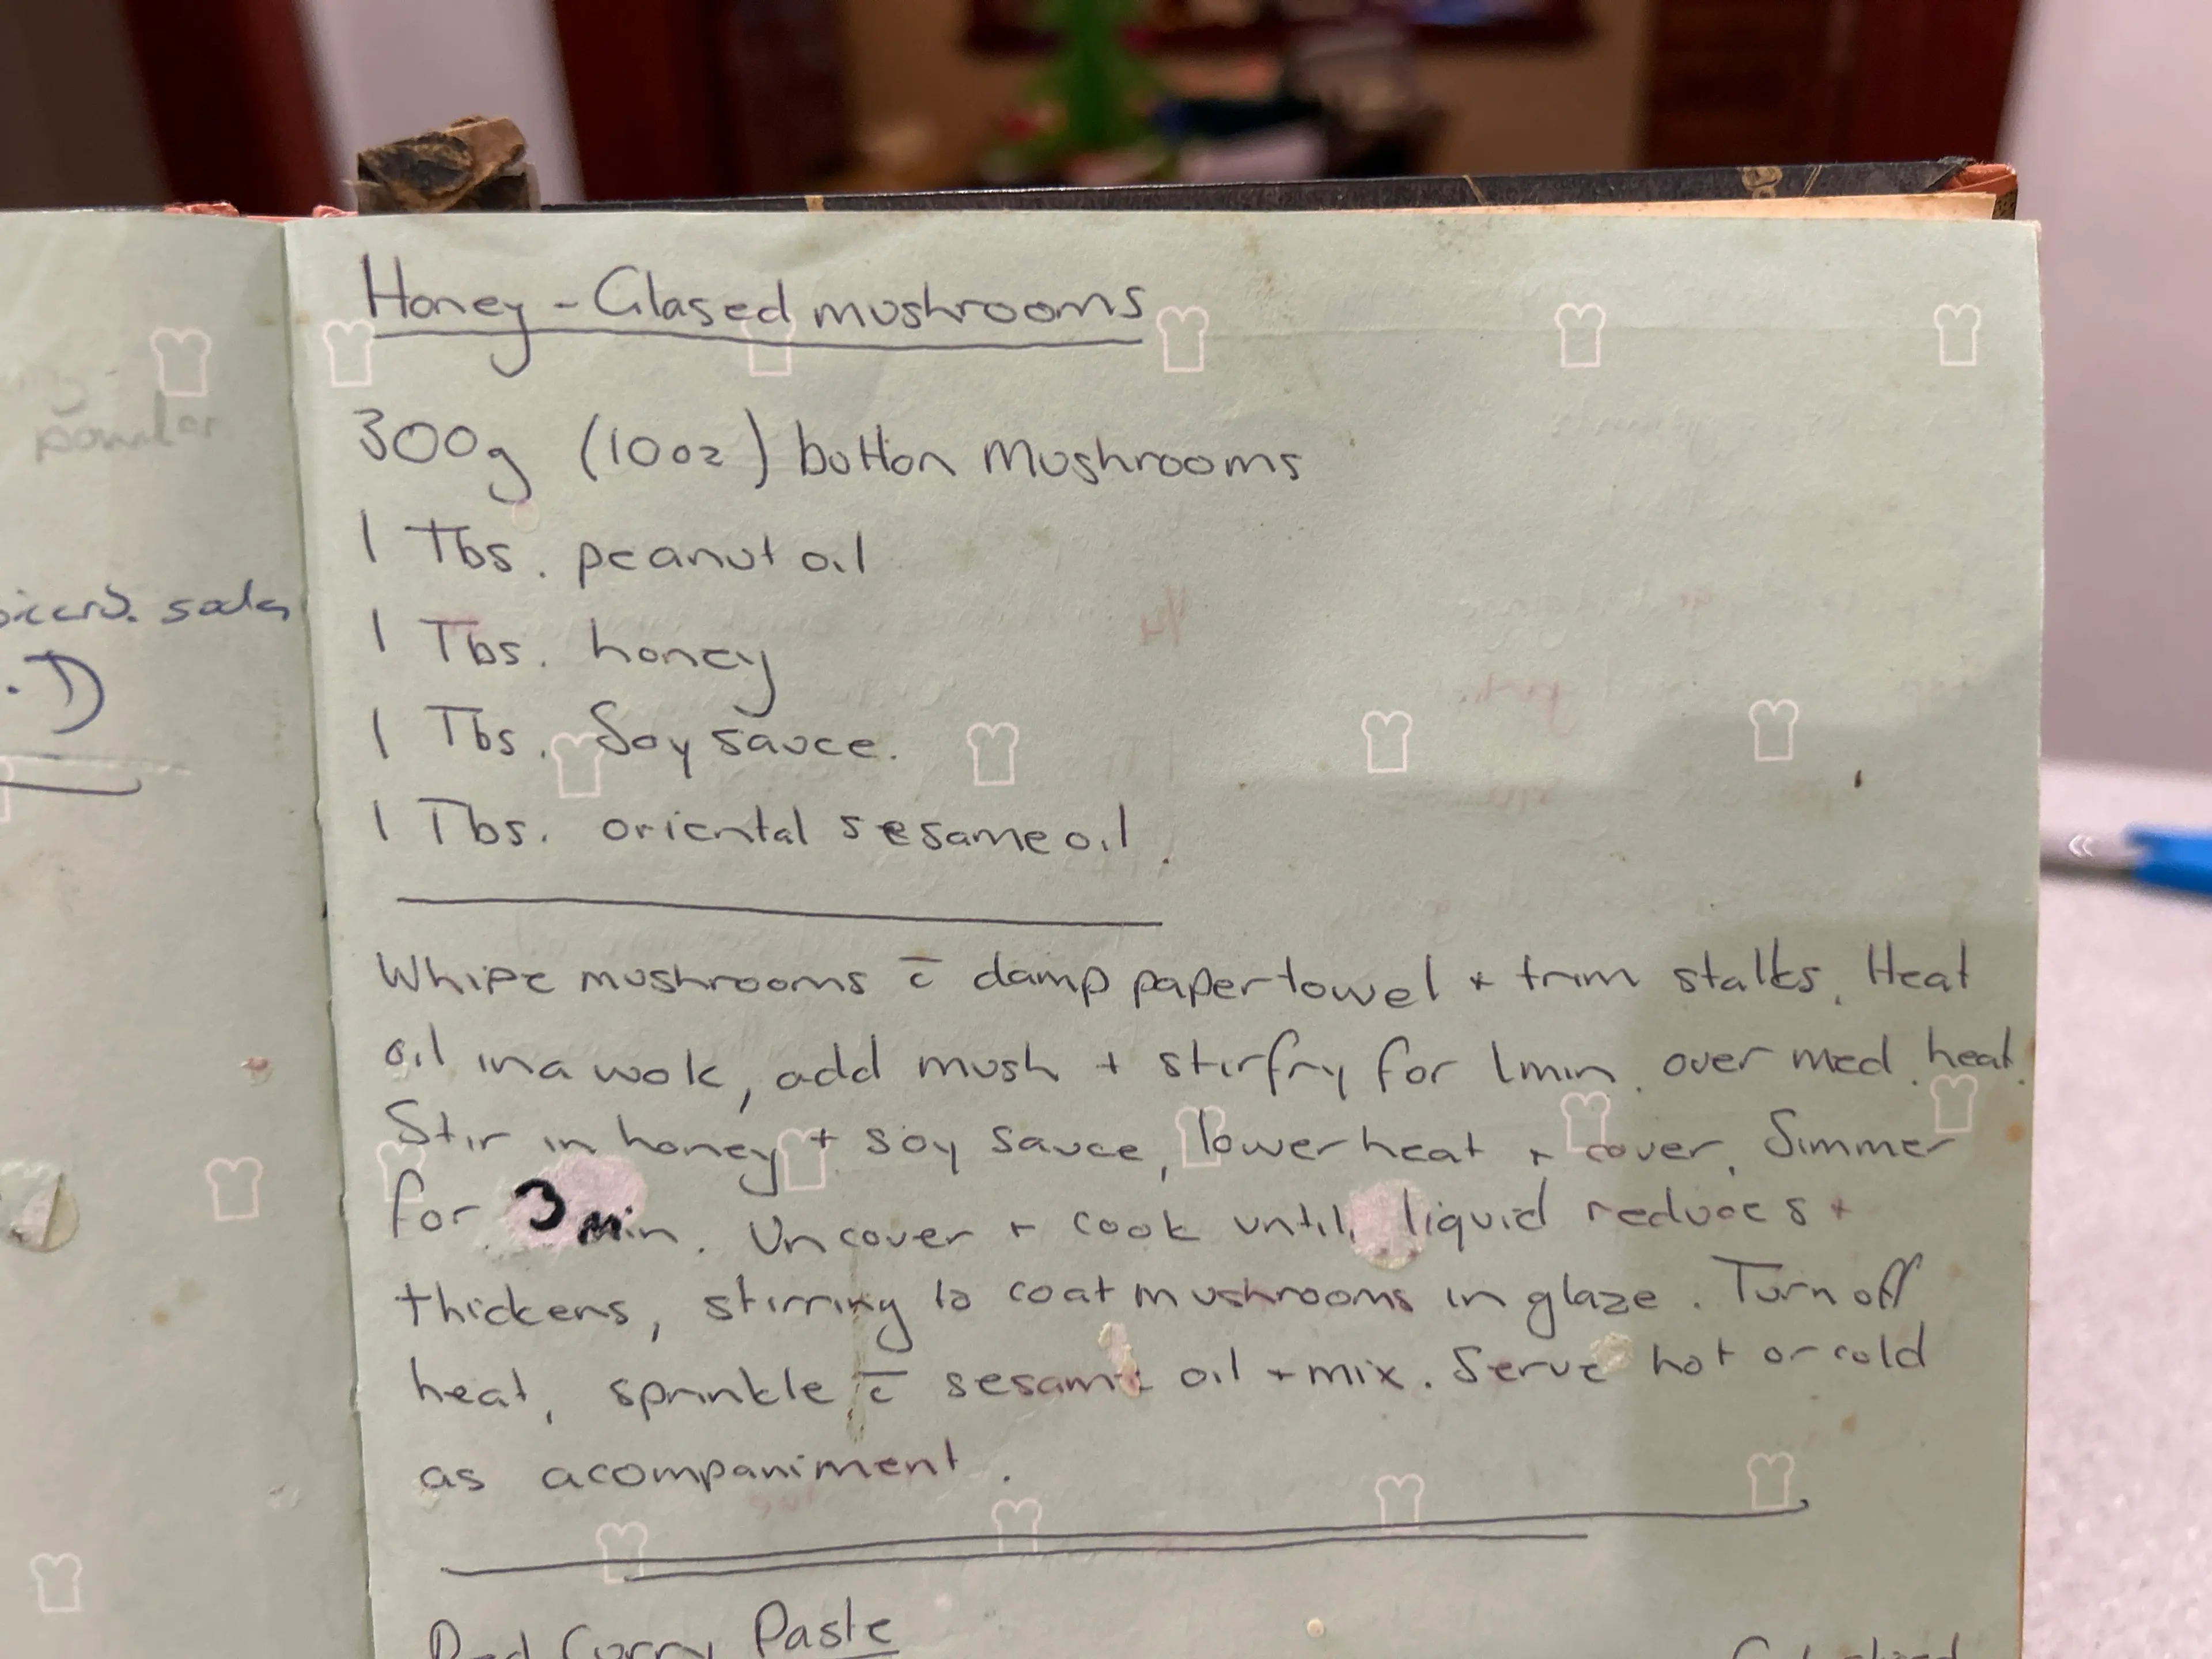 powder
bicarb. soda
.D
Honey - Glased mushrooms
300g (10oz) button Mushrooms
1 Tbs. peanut oil
1 Tbs. honey
1 Tbs. Soy sauce.
1 Tbs. oriental sesame oil.
Whipe mushrooms c̄ damp paper towel + trim stalks. Heat
oil in a wok, add mush + stirfry for 1min. over med. heat.
Stir in honey + soy sauce, lower heat + cover. Simmer
for 3 min. Uncover + cook until liquid reduces +
thickens, stirring to coat mushrooms in glaze. Turn off
heat, sprinkle c̄ sesame oil + mix. Serve hot or cold
as acompaniment.
Red Curry Paste